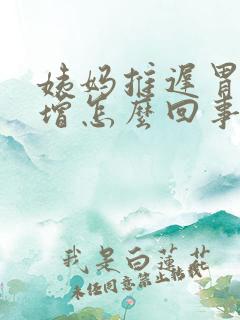 姨妈推遲胃
增怎麼回事
我是白蓮花
未经同意禁止转载